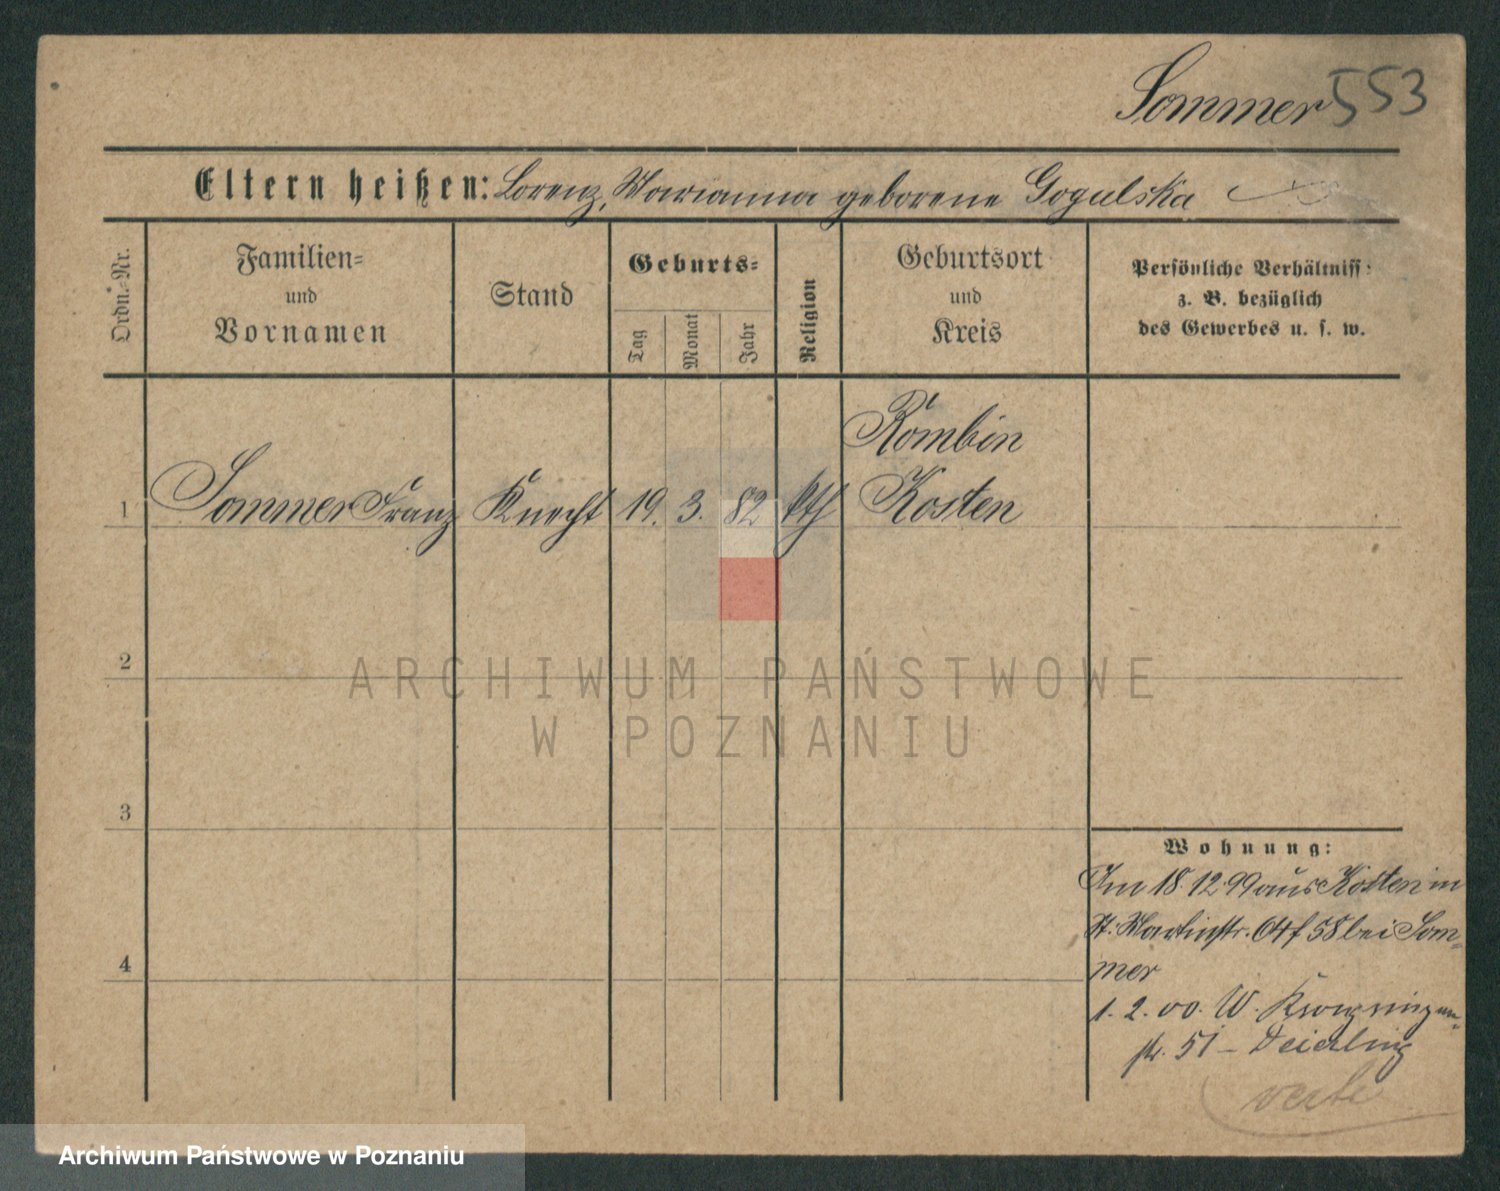 Sommer 553
Eltern heißen: Lorenz, Marianna geborene Gogulska
Ordn.-Nr.
Familien-
und
Vornamen
Stand
Geburts-
Tag
Monat
Jahr
Religion
Geburtsort
und
Kreis
Persönliche Verhältniss:
z. B. bezüglich
des Gewerbes u. s. w.
Rombin
1 Sommer Franz Knecht 19. 3. 82 kth Kosten
2
ARCHIWUM PAŃSTWOWE
W POZNANIU
3
Wohnung:
Am 18.12.99 aus Kosten in
St. Martinstr. 58 bei Som-
mer
4
1. 2. 00. W. Kronprinzen-
str. 51 - Deierling
verte
Archiwum Państwowe w Poznaniu